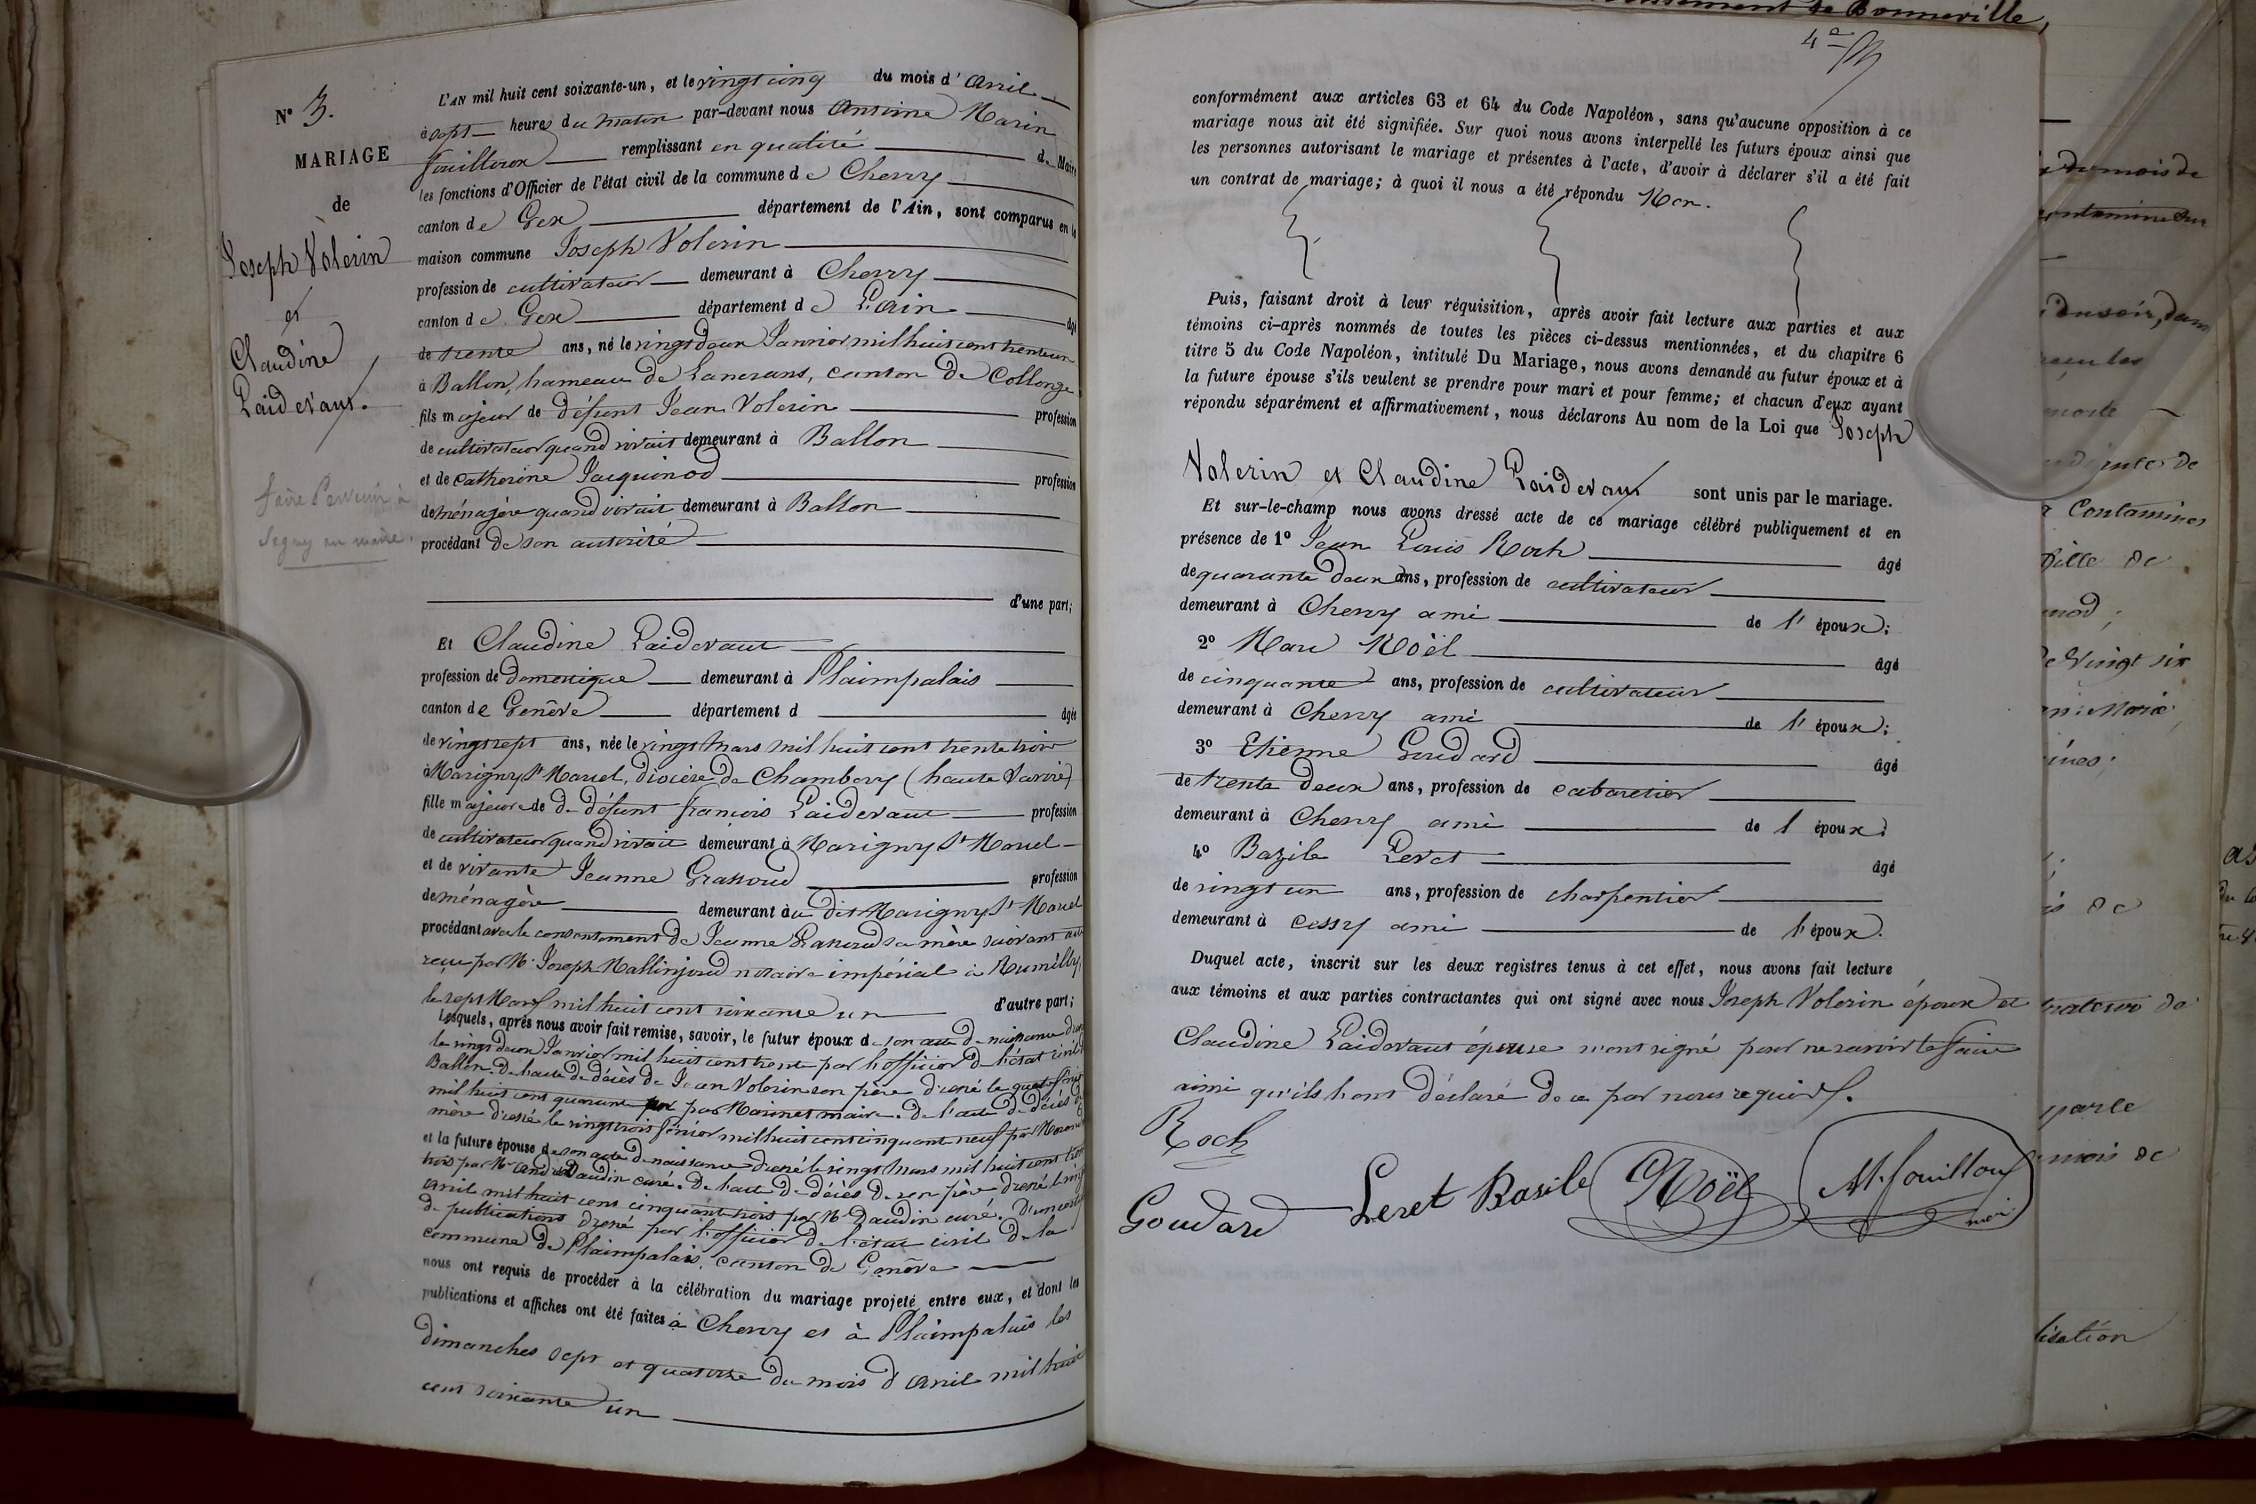 N° 3.
MARIAGE
de
Joseph Volerin
et
Claudine
Laidevaux.
faire Parvenir à
Segny au maire.
L'AN mil huit cent soixante-un, et le vingt cinq du mois d'avril
à sept heures du matin par-devant nous Antoine Marin
fouilloux remplissant en qualité de Maire
les fonctions d'Officier de l'état civil de la commune de Chevry
canton de Gex département de l'Ain, sont comparus en la
maison commune Joseph Volerin
profession de cultivateur demeurant à Chevry
canton de Gex département de L'ain âgé
de trente ans, né le vingt deux Janvier mil huit cent trente un
à Ballon, hameau de Lancrans, canton de Collonge
fils majeur de défunt Jean Volerin profession
de cultivateur quand vivait demeurant à Ballon
et de Catherine Jacquinod profession
de ménagère quand vivait demeurant à Ballon
procédant de son autorité
d'une part;
Et Claudine Laidevaut
profession de Domestique demeurant à Plaimpalais
canton de Genève département d âgée
de vingt sept ans, née le vingt Mars mil huit cent trente trois
à Marigny St Marcel, diocèse de Chambery (haute Savoie)
fille majeure de D défunt françois Laidevaut profession
de cultivateur quand vivait demeurant à Marigny St Marcel
et de vivante Jeanne Grassoud profession
de ménagère demeurant au dit Marigny St Marcel
procédant avec le consentement de Jeanne Grassoud sa mère suivant acte
reçu par Mr Joseph Mallinjoud notaire impérial à Rumilly,
le sept Mars mil huit cent soixante un d'autre part;
Lesquels, après nous avoir fait remise, savoir, le futur époux de son acte de naissance dressé
le vingt deux Janvier mil huit cent trente par l'officier de l'état civil de
Ballon. De l'acte de décès de Jean Volerin son père dressé le quatre
mil huit cent quarante par Marinet maire. De l'acte de décès de
mère dressé le vingt trois février mil huit cent cinquante neuf par
et la future épouse de son acte de naissance dressé le vingt Mars mil huit cent trente
trois par Mr André Daudin curé. De l'acte de décès de son père dressé le vingt
avril mil huit cent cinquante trois par Mr Daudin curé. D'un certificat
de publications dressé par l'officier de l'état civil de la
commune de Plaimpalais, canton de Genève
nous ont requis de procéder à la célébration du mariage projeté entre eux, et dont les
publications et affiches ont été faites à Chevry et à Plaimpalais les
dimanches sept et quatorze du mois d'avril mil huit
cent soixante un
conformément aux articles 63 et 64 du Code Napoléon, sans qu'aucune opposition à ce
mariage nous ait été signifiée. Sur quoi nous avons interpellé les futurs époux ainsi que
les personnes autorisant le mariage et présentes à l'acte, d'avoir à déclarer s'il a été fait
un contrat de mariage; à quoi il nous a été répondu Non.
Puis, faisant droit à leur réquisition, après avoir fait lecture aux parties et aux
témoins ci-après nommés de toutes les pièces ci-dessus mentionnées, et du chapitre 6
titre 5 du Code Napoléon, intitulé Du Mariage, nous avons demandé au futur époux et à
la future épouse s'ils veulent se prendre pour mari et pour femme; et chacun d'eux ayant
répondu séparément et affirmativement, nous déclarons Au nom de la Loi que Joseph
Volerin et Claudine Laidevaux sont unis par le mariage.
Et sur-le-champ nous avons dressé acte de ce mariage célébré publiquement et en
présence de 1° Jean Louis Roch âgé
de quarante deux ans, profession de cultivateur
demeurant à Chevry ami de l'époux;
2° Marc Noël âgé
de cinquante ans, profession de cultivateur
demeurant à Chevry ami de l'époux;
3° Etienne Goudard âgé
de trente deux ans, profession de cabaretier
demeurant à Chevry ami de l'époux;
4° Bazile Levet âgé
de vingt un ans, profession de charpentier
demeurant à Cessy ami de l'époux.
Duquel acte, inscrit sur les deux registres tenus à cet effet, nous avons fait lecture
aux témoins et aux parties contractantes qui ont signé avec nous Joseph Volerin époux et
Claudine Laidevaut épouse n'ont signé pour ne savoir le faire
ainsi qu'ils l'ont déclaré de ce par nous requis.
Roch
Goudard Leret Basile Noël M. fouilloux